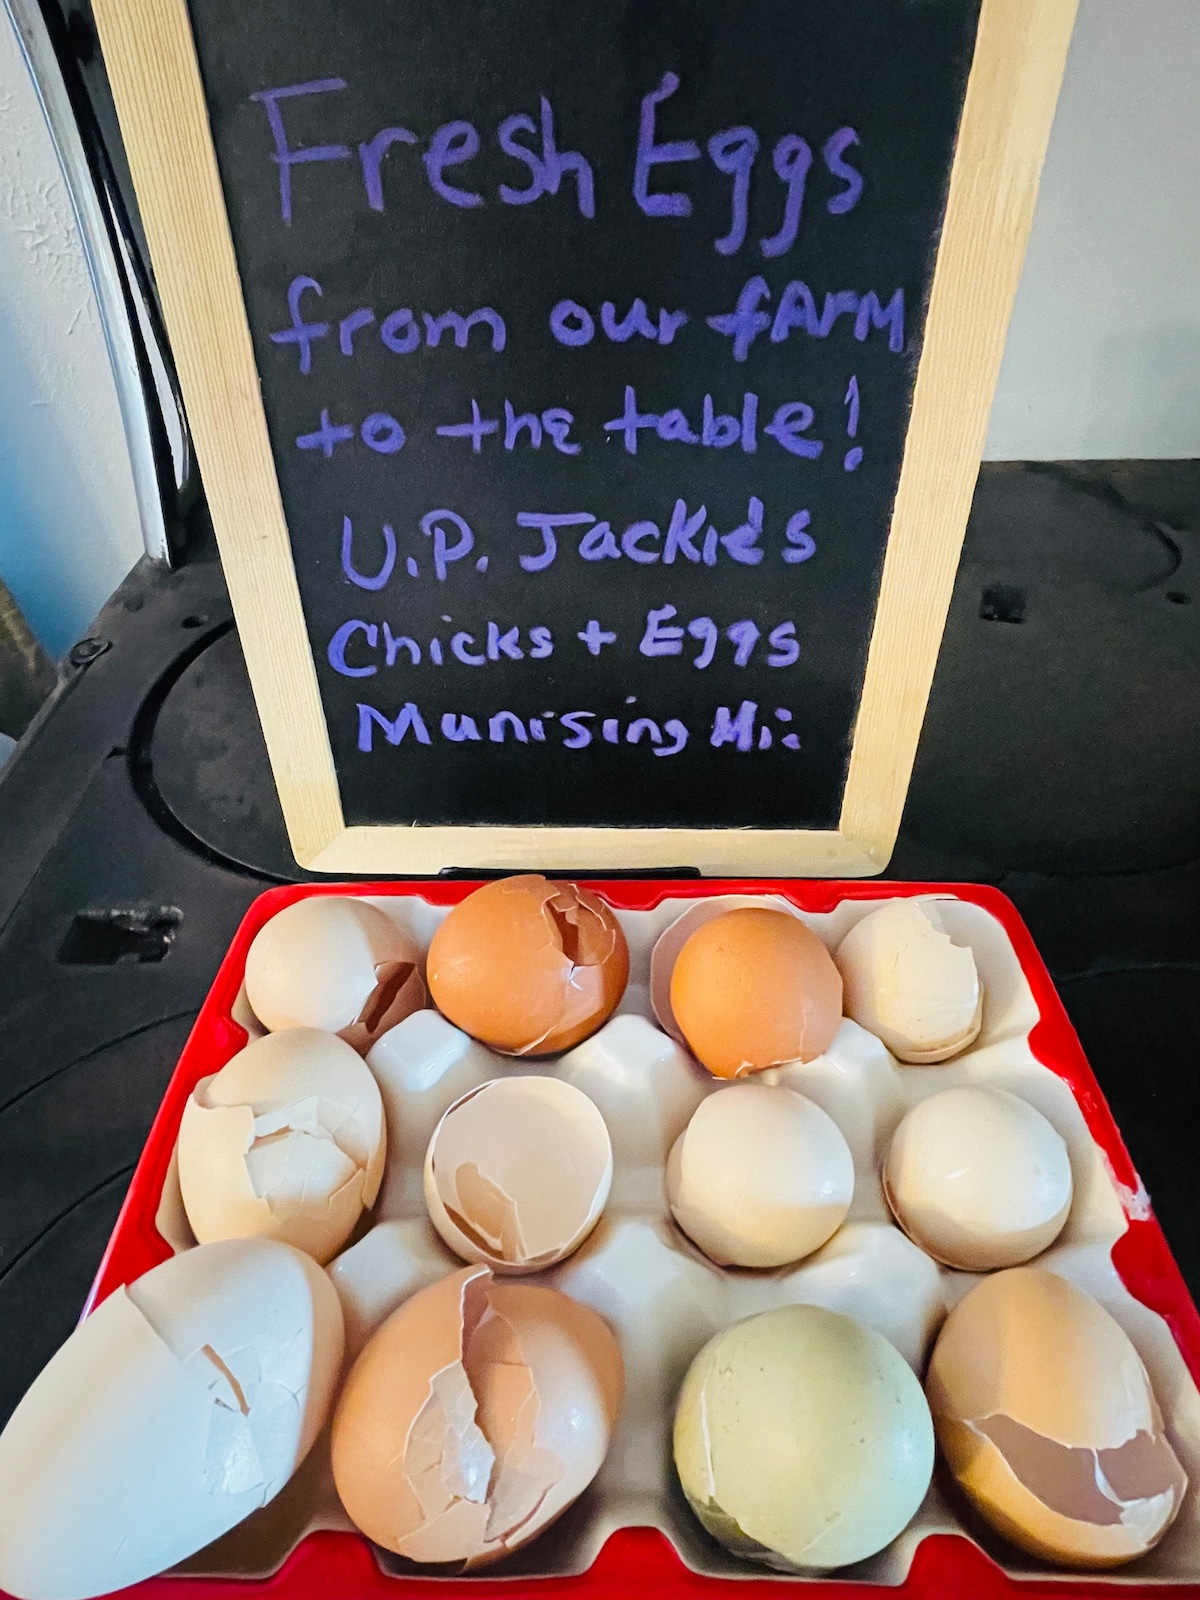 Fresh Eggs
from our fArM
to the table!
U.P. Jackie's
Chicks + Eggs
Munising Mi: